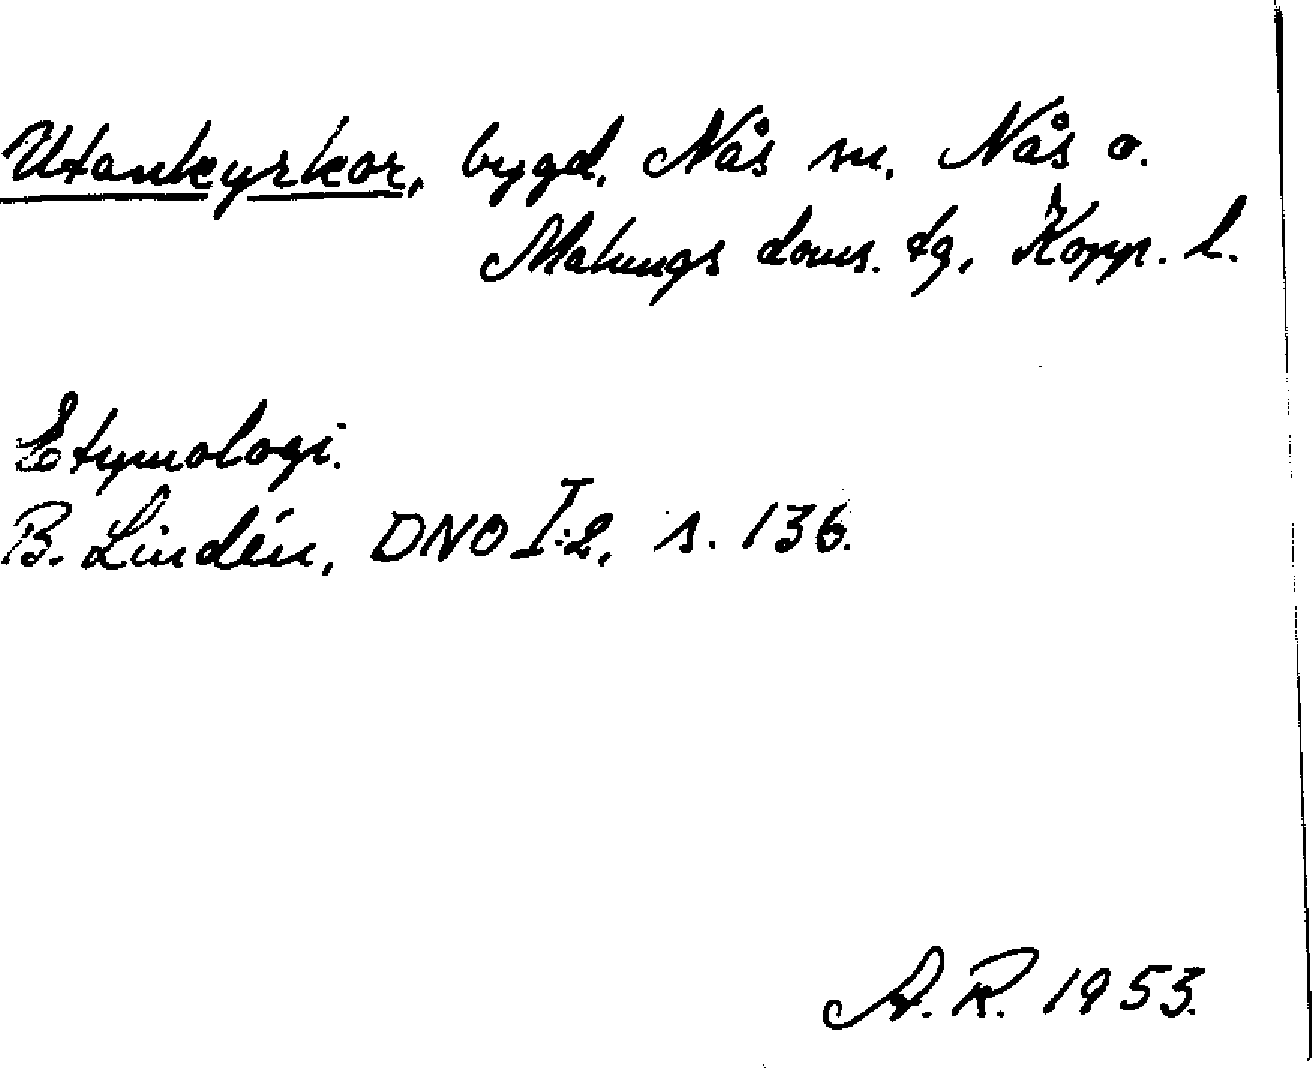 Utankyrkor, bygd, Nås sn, Nås o.
Malungs doms. tg, Kopp. l.
Etymologi.
B. Lindén, DNO I:2, s. 136.
A. R. 1953.